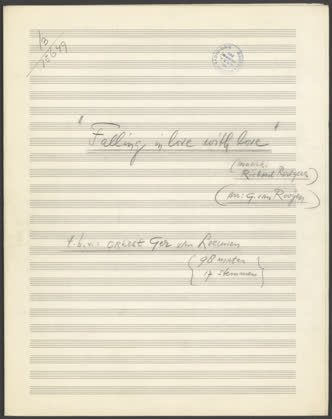 18
"Falling in love with love"
(muziek:
Richard Rodgers)
(arr: G. van Rooyen)
t.b.v. orkest Ger van Leeuwen
(98 maten
17 stemmen)